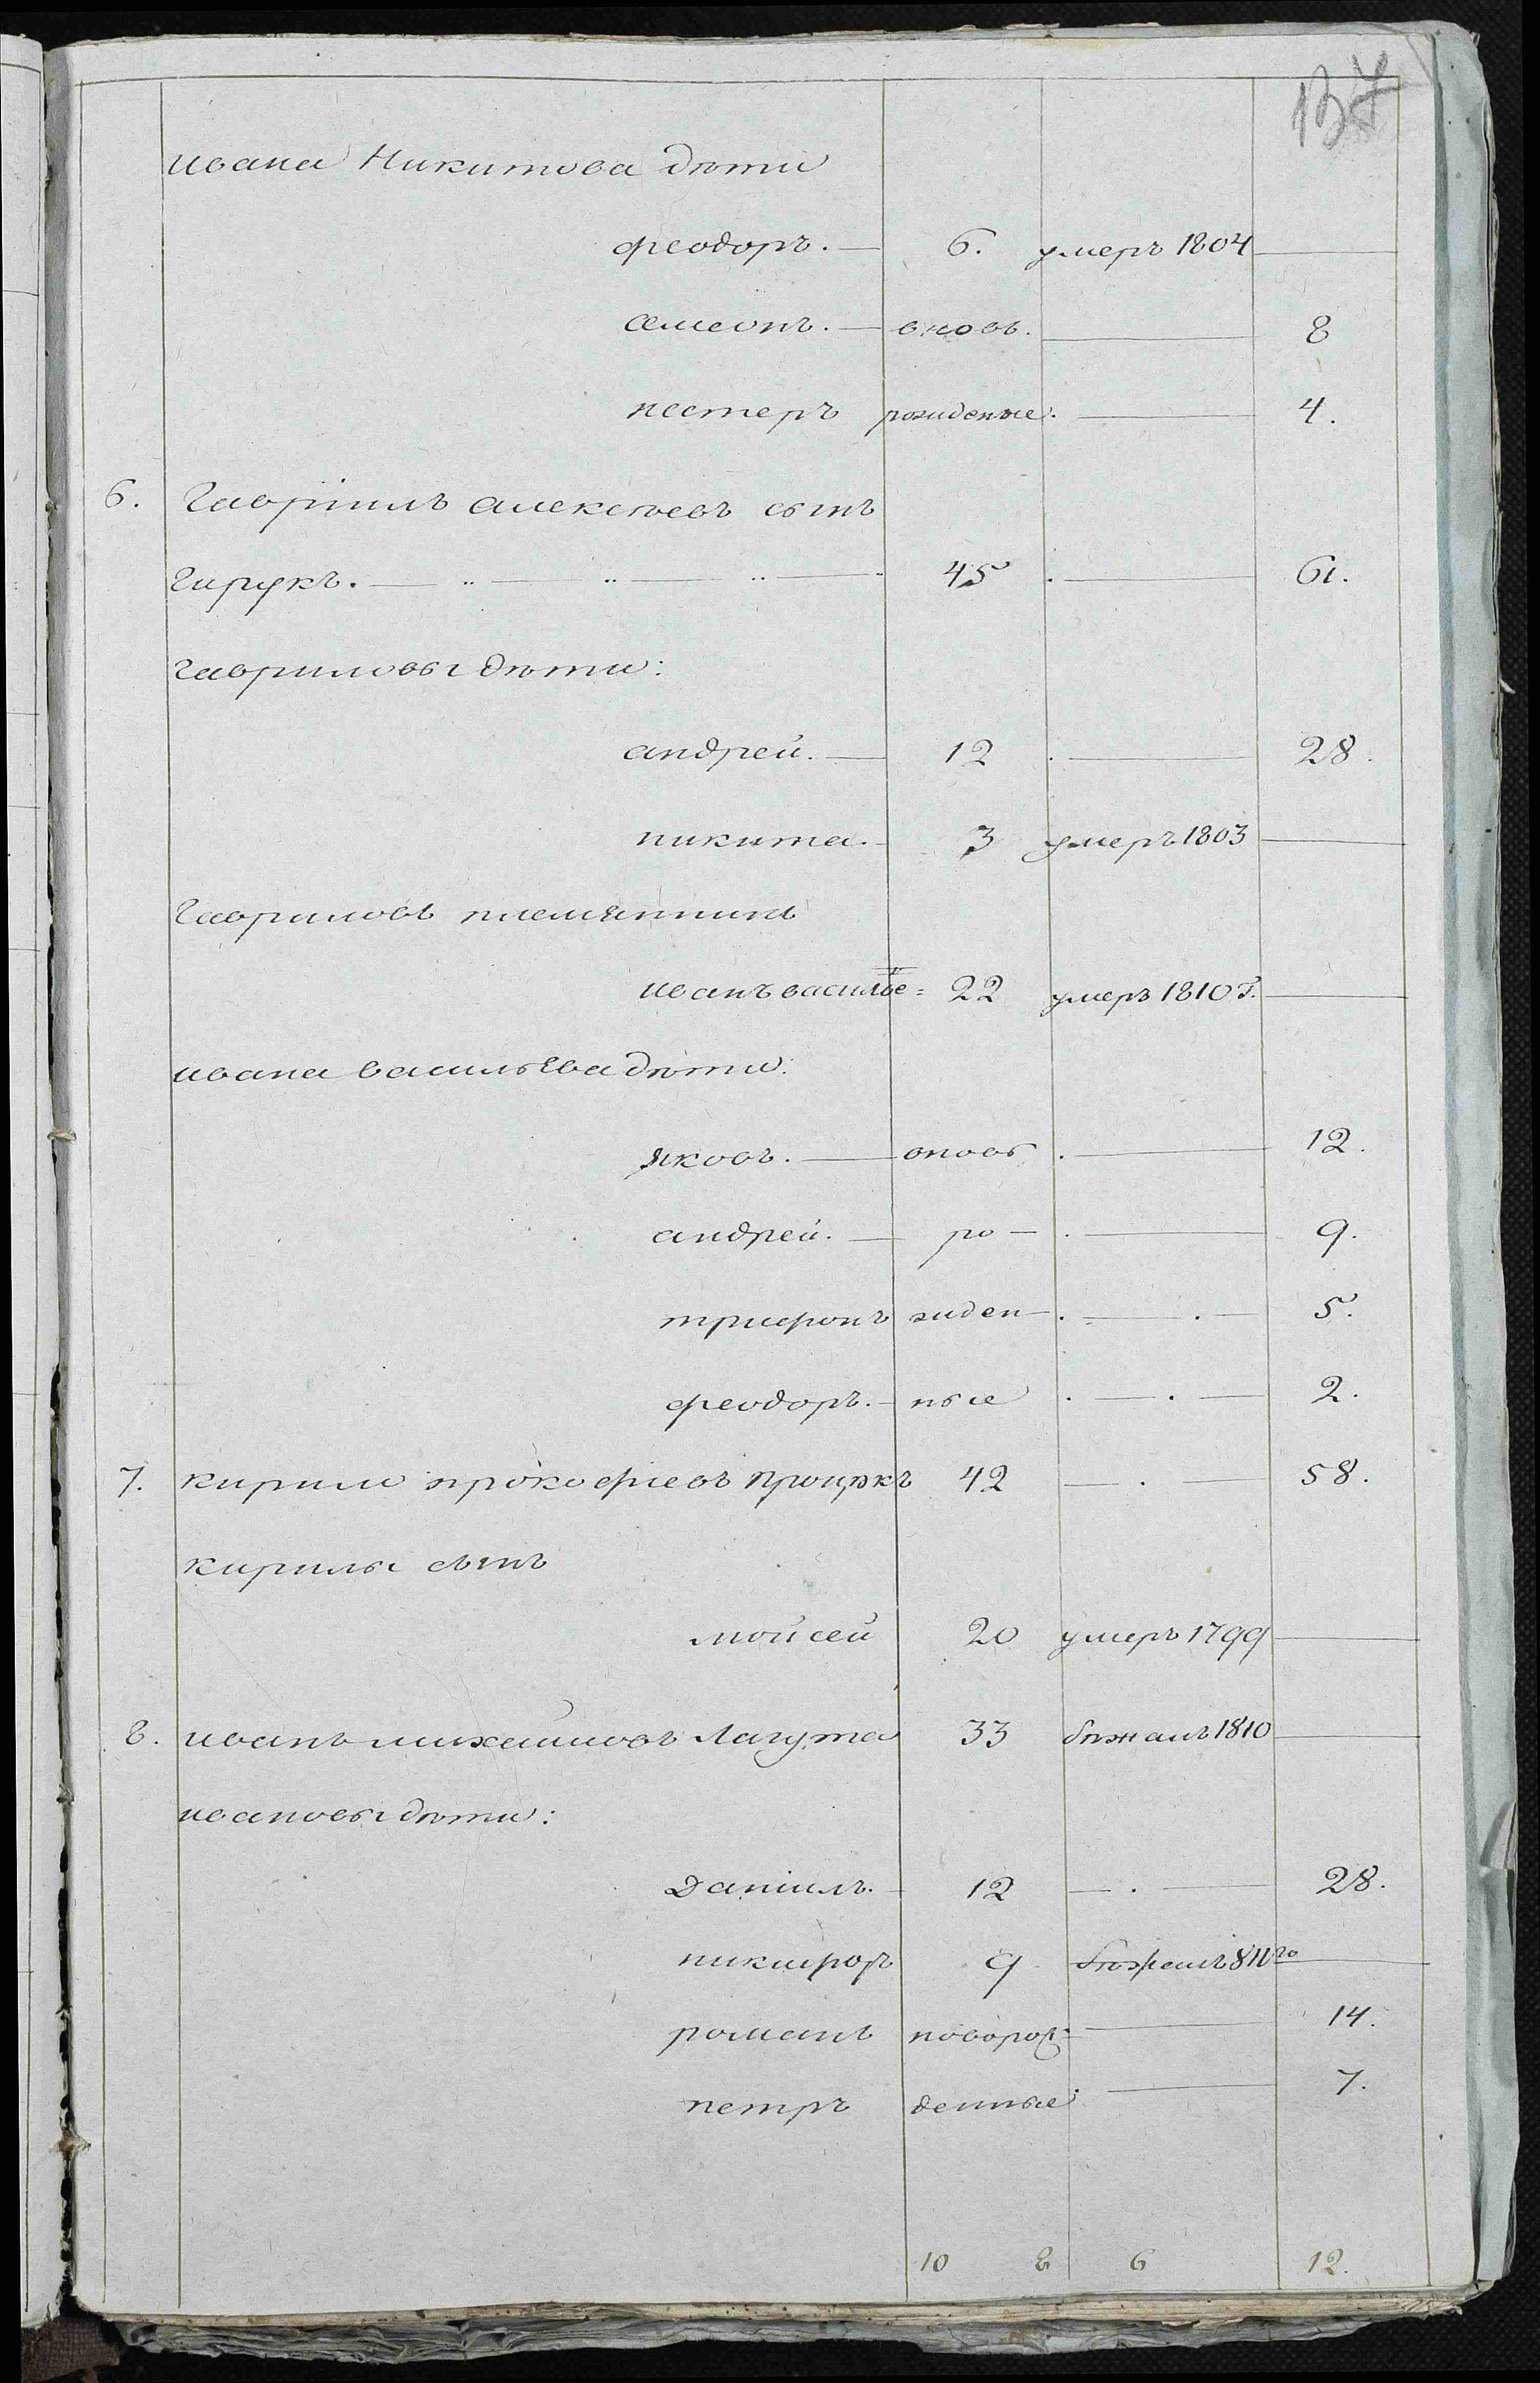 137
ивана Никитова дѣти
феодоръ. — 6. умеръ 1804 —
семеонъ. — вновь. — 8
нестеръ рожденые. — 4.
6. Гавріилъ алексѣевъ сынъ
гирукъ. — 45 . — 61.
гавриловы дѣти:
андрей. — 12 . — 28.
никита. 3 умеръ 1803 —
Гавриловъ племянникъ
иванъ василье= 22 умеръ 1810 г. —
ивана васильева дѣти:
яковъ. — вновь . — 12.
андрей. — ро — . — 9.
трифонъ жден — . — . — 5.
феодоръ. — ные . — . — 2.
7. кирило прокофиевъ Процюкъ 42 — . — 58.
кирилы сынъ
мойсей 20 умеръ 1799 —
8. иванъ михайловъ Лагута 33 бѣжалъ 1810 —
ивановы дѣти:
Даніилъ. — 12 — . — 28.
никифоръ 9 бѣжалъ 811го —
романъ новорож= — 14.
петръ денные . — 7.
10 8 6 12.